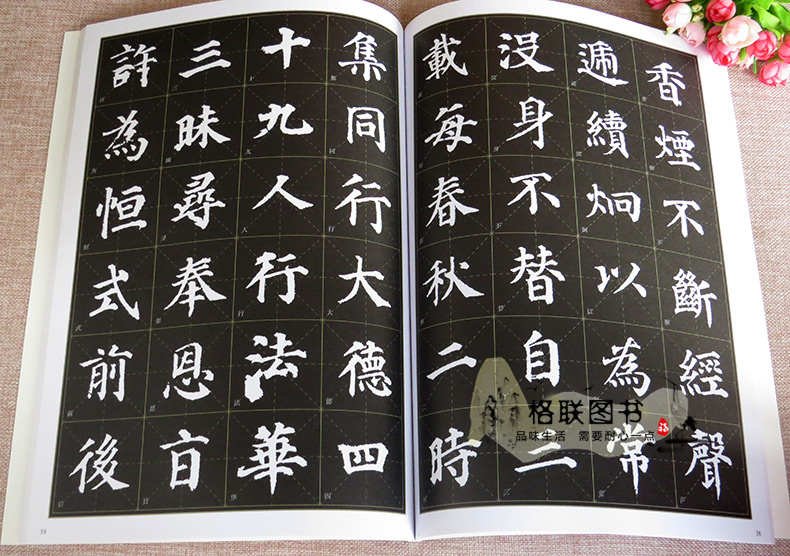 香煙不斷經聲
遞續炯以為常
没身不替自三
載每春秋二時
集同行大德四
十九人行法華
三昧尋奉恩旨
許為恒式前後
格联图书
品味生活 需要耐心一点
福
39